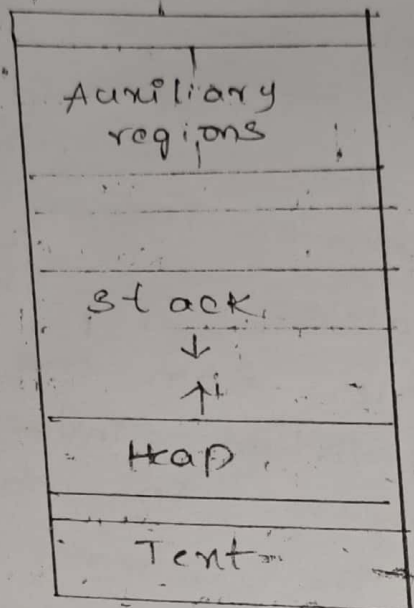 Auxiliary
regions
Stack
↓
↑
Heap
Text